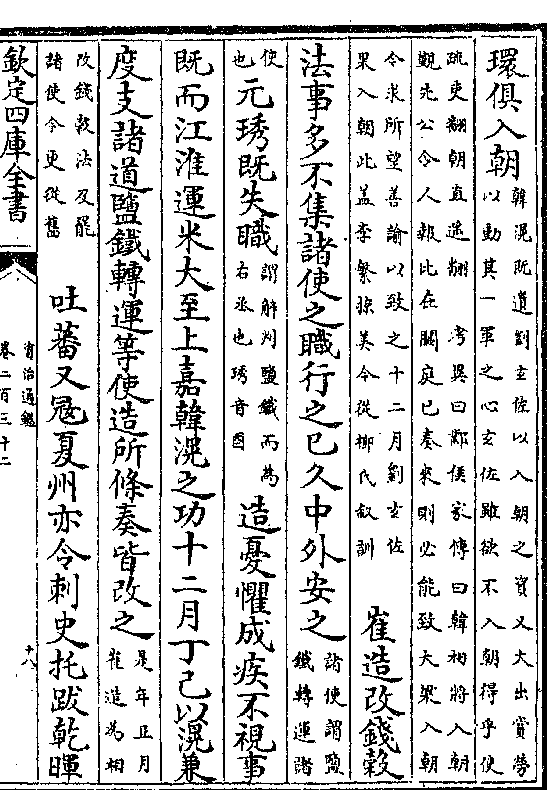 環俱入朝韓滉既遺劉玄佐以入朝之資又大出賞勞以動其一軍之心玄佐雖欲不入朝得乎使
疏吏翻朝直遥翻 考異曰鄴侯家傳曰韓相將入朝覲先公令人報比在闕庭已奏來則必能致大梁入朝
令求所望善諭以致之十二月劉玄佐果入朝此盖李繁掠美今從柳氏叙訓 崔造改錢穀
法事多不集諸使之職行之已久中外安之諸使謂鹽鐵轉運諸
使也元琇既失職謂解判鹽鐵而為右丞也琇音酉造憂懼成疾不視事
既而江淮運米大至上嘉韓滉之功十二月丁巳以滉兼
度支諸道鹽鐵轉運等使造所條奏皆改之是年正月崔造為相
改錢穀法及罷諸使今更從舊 吐蕃又冦夏州亦令刺史托跋乾暉
欽定四庫全書
資治通鑑
卷二百三十二
十八